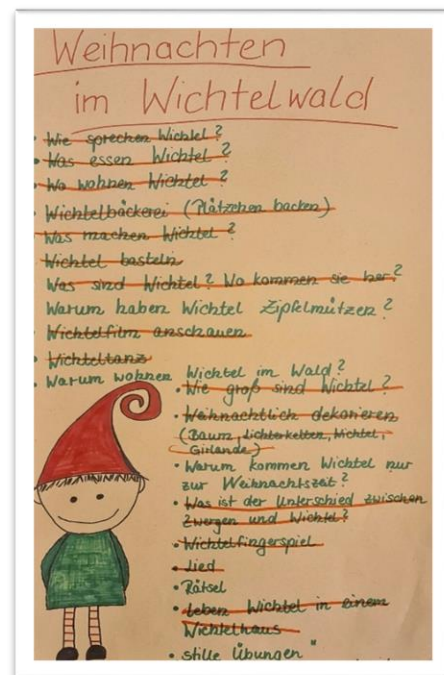 Weihnachten
im Wichtelwald
• Wie sprechen Wichtel?
• Was essen Wichtel?
• Wo wohnen Wichtel?
• Wichtelbäckerei (Plätzchen backen)
Was machen Wichtel?
Wichtel basteln
Was sind Wichtel? Wo kommen sie her?
Warum haben Wichtel Zipfelmützen?
• Wichtelfilm anschauen
• Wichteltanz
• Warum wohnen Wichtel im Wald?
• Wie groß sind Wichtel?
• Weihnachtlich dekorieren
(Baum, Lichterketten, Wichtel,
Girlande)
• Warum kommen Wichtel nur
zur Weihnachtszeit?
• Was ist der Unterschied zwischen
Zwergen und Wichtel?
• Wichtelfingerspiel
• Lied
• Rätsel
• Leben Wichtel in einem
Wichtelhaus
• stille Übungen